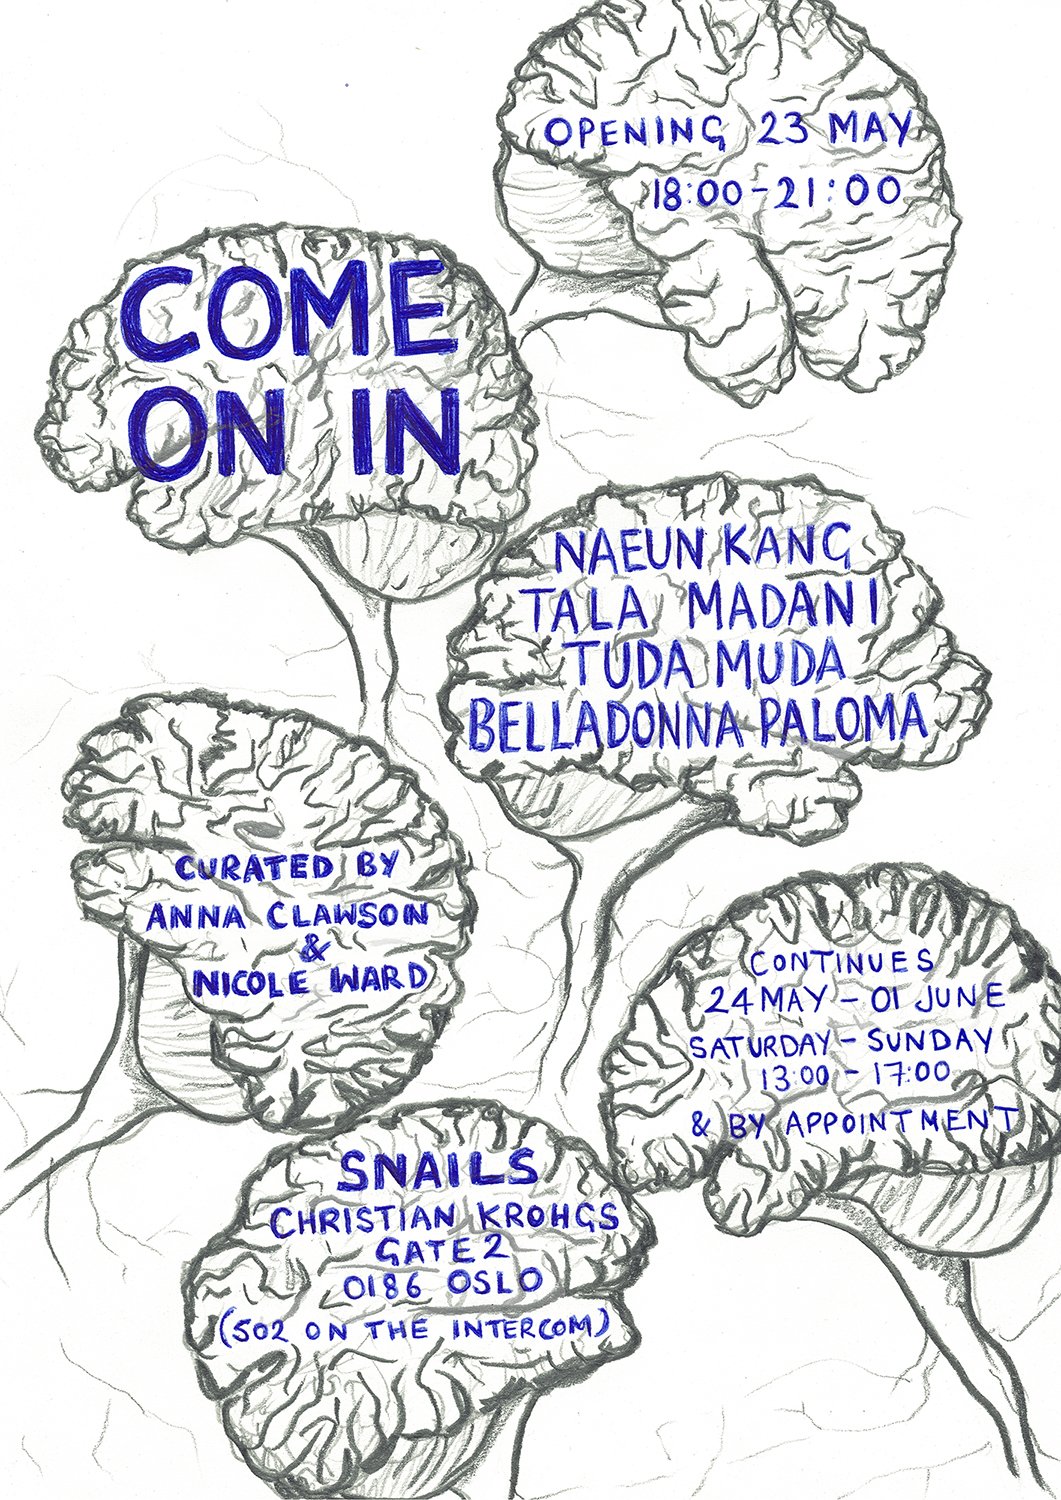 OPENING 23 MAY
18:00-21:00
COME
ON IN
NAEUN KANG
TALA MADANI
TUDA MUDA
BELLADONNA PALOMA
CURATED BY
ANNA CLAWSON
&
NICOLE WARD
CONTINUES
24 MAY - 01 JUNE
SATURDAY - SUNDAY
13:00 - 17:00
& BY APPOINTMENT
SNAILS
CHRISTIAN KROHGS
GATE 2
0186 OSLO
(502 ON THE INTERCOM)